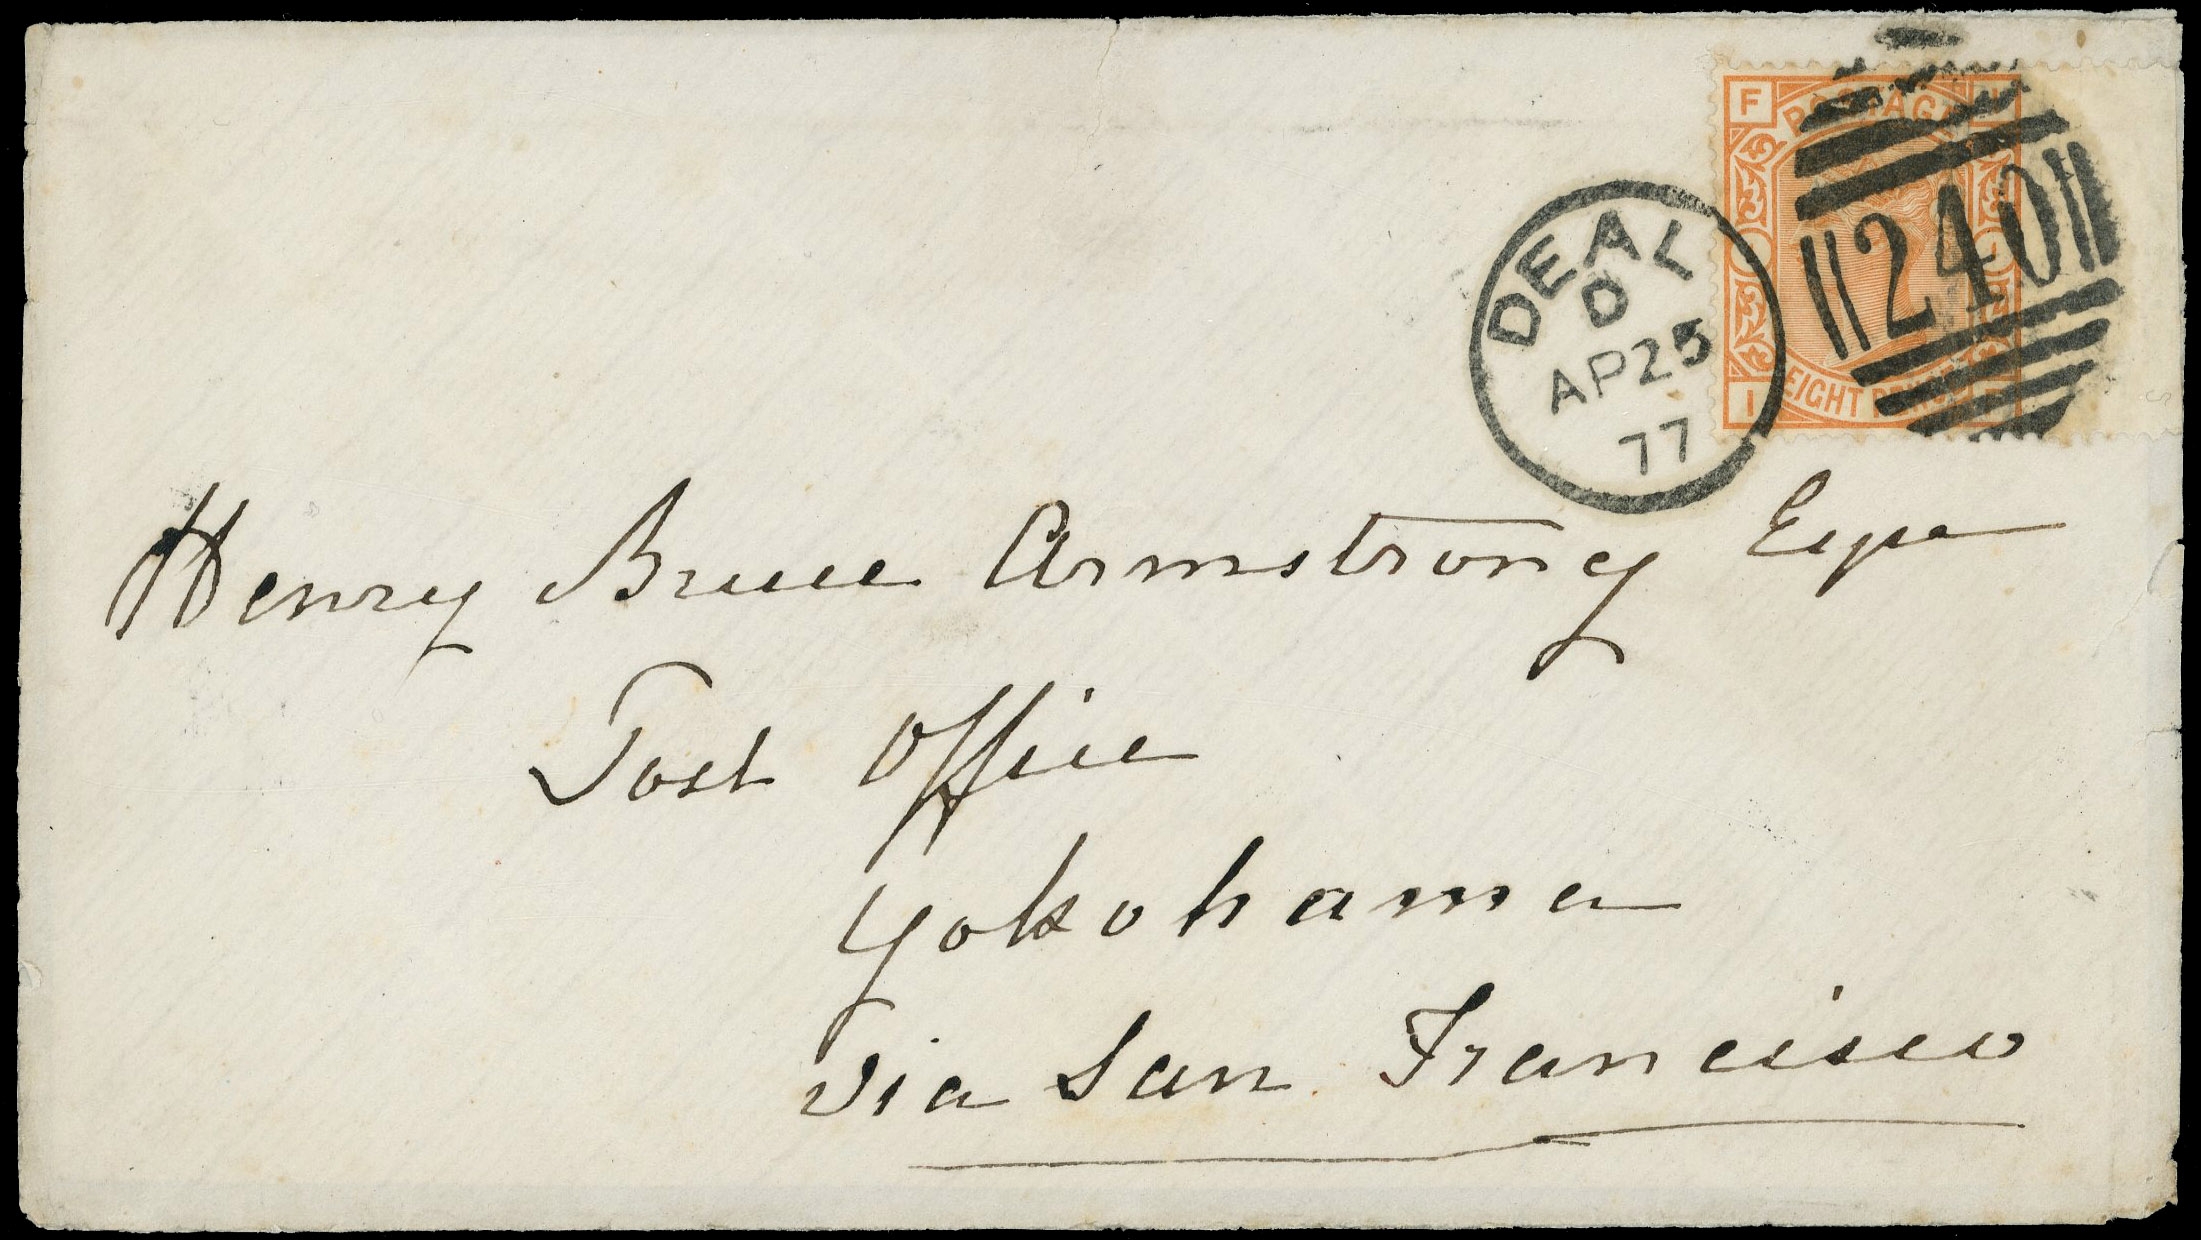 F H
POSTAGE
EIGHT PENCE
I F
240
DEAL
D
AP25
77
Henry Bruce Armstrong Esqre
Post Office
Yokohama
via San Francisco